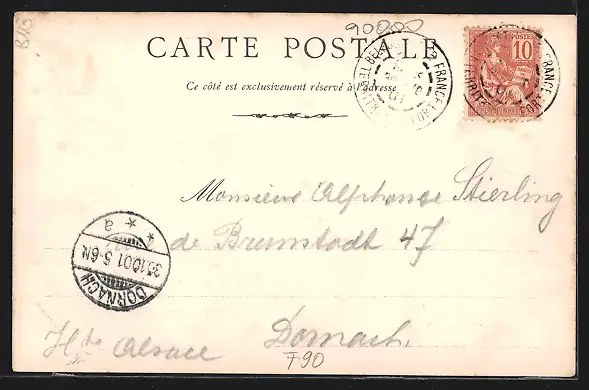 90000
B115
CARTE POSTALE
Ce côté est exclusivement réservé à l'adresse
POSTES
10
FRANCE
Monsieur Alphonse Stierling
de Brunstadt 47
30.10.01 5-6N
DORNACH
Hte Alsace Dornach
790